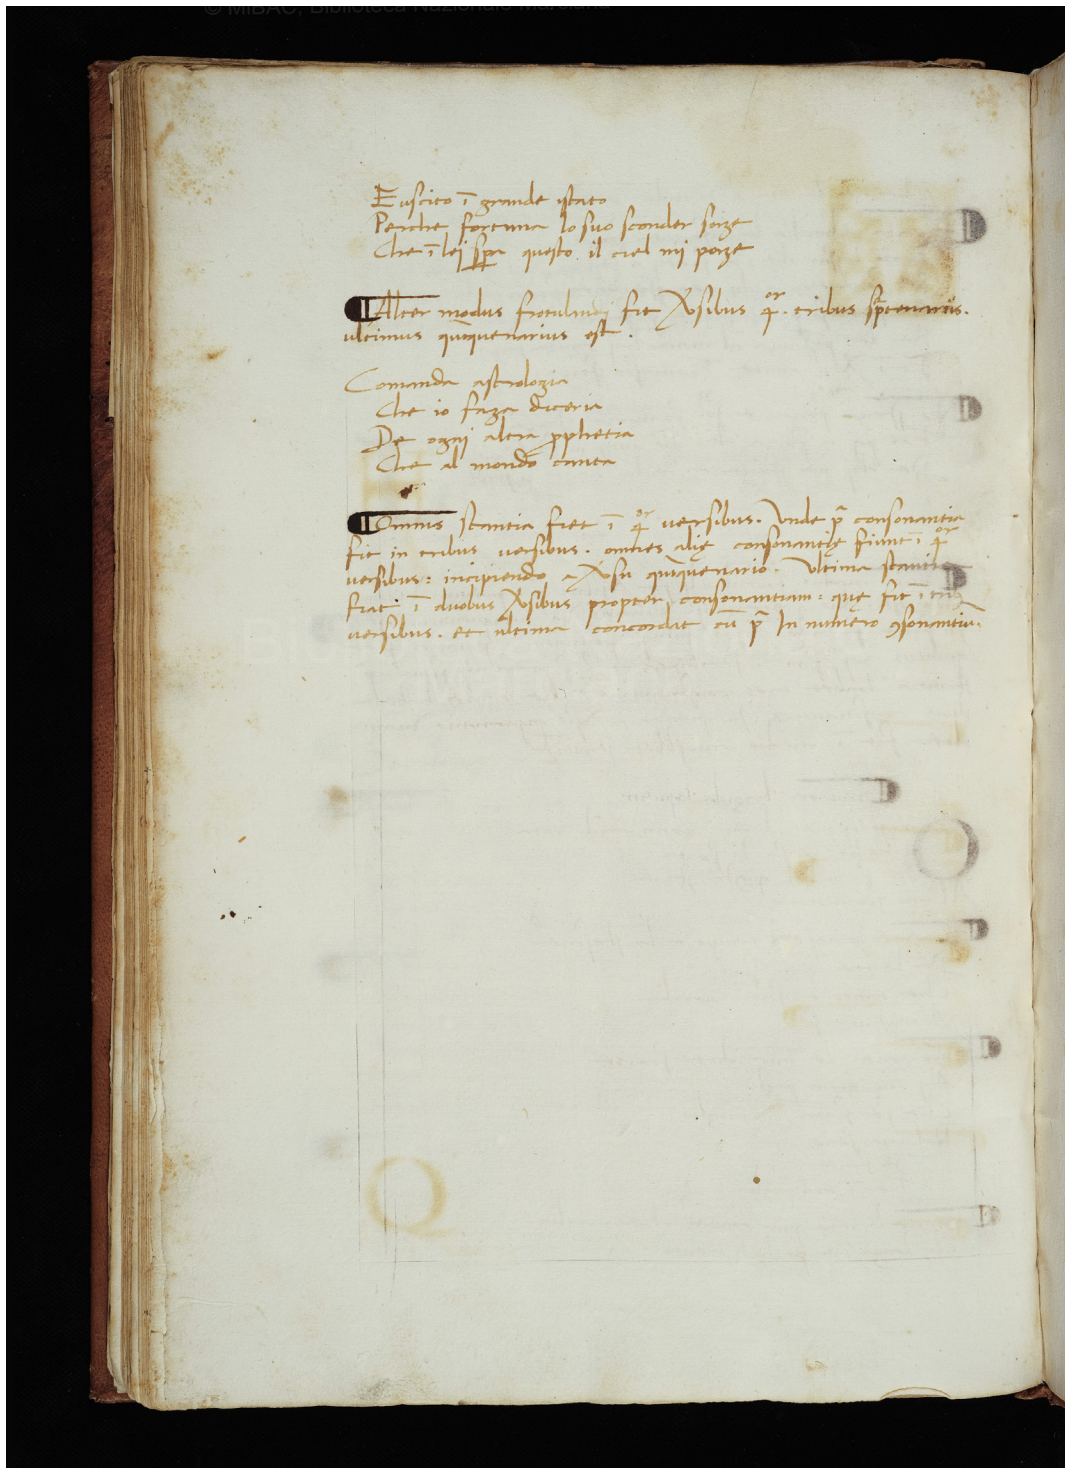 © MiBAC, Biblioteca Nazionale Marciana
E uscito ī grande stato
Perche fortuna lo suo sconder sorze
Che ī lei questo il ciel mi porze
¶ Alter modus frotulandi fit ꝟsibus q̄ᵒʳ. tribus sp̄tenariis.
ultimus quīquenarius est.
Comanda astrologia
Che io faza diceria
De ogni altra prophetia
Che al mondo canta
¶ Omnis stantia fiet ī q̄ᵒʳ uersibus. Vnde p̄ consonantia
fit in tribus uersibus. omnes alię consonantię fiunt ī q̄ᵒʳ
uersibus: incipiendo a ꝟsu quīquenario. Vltima stantia
fiat ī duobus ꝟsibus propter consonantiam: quę fit ī
uersibus. et ultima concordat cū p̄ In numero ꝯsonantiū.